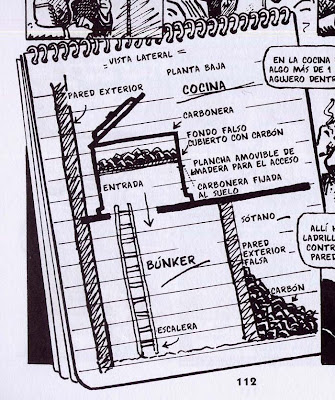 = VISTA LATERAL =
PLANTA BAJA
COCINA
PARED EXTERIOR
CARBONERA
FONDO FALSO
CUBIERTO CON CARBÓN
PLANCHA AMOVIBLE DE
MADERA PARA EL ACCESO
ENTRADA
CARBONERA FIJADA
AL SUELO
SÓTANO
PARED
EXTERIOR
FALSA
BÚNKER
CARBÓN
ESCALERA
EN LA COCINA
ALGO MÁS DE 1
AGUJERO DENTR
ALLÍ H
LADRILL
CONTR
PARED
112